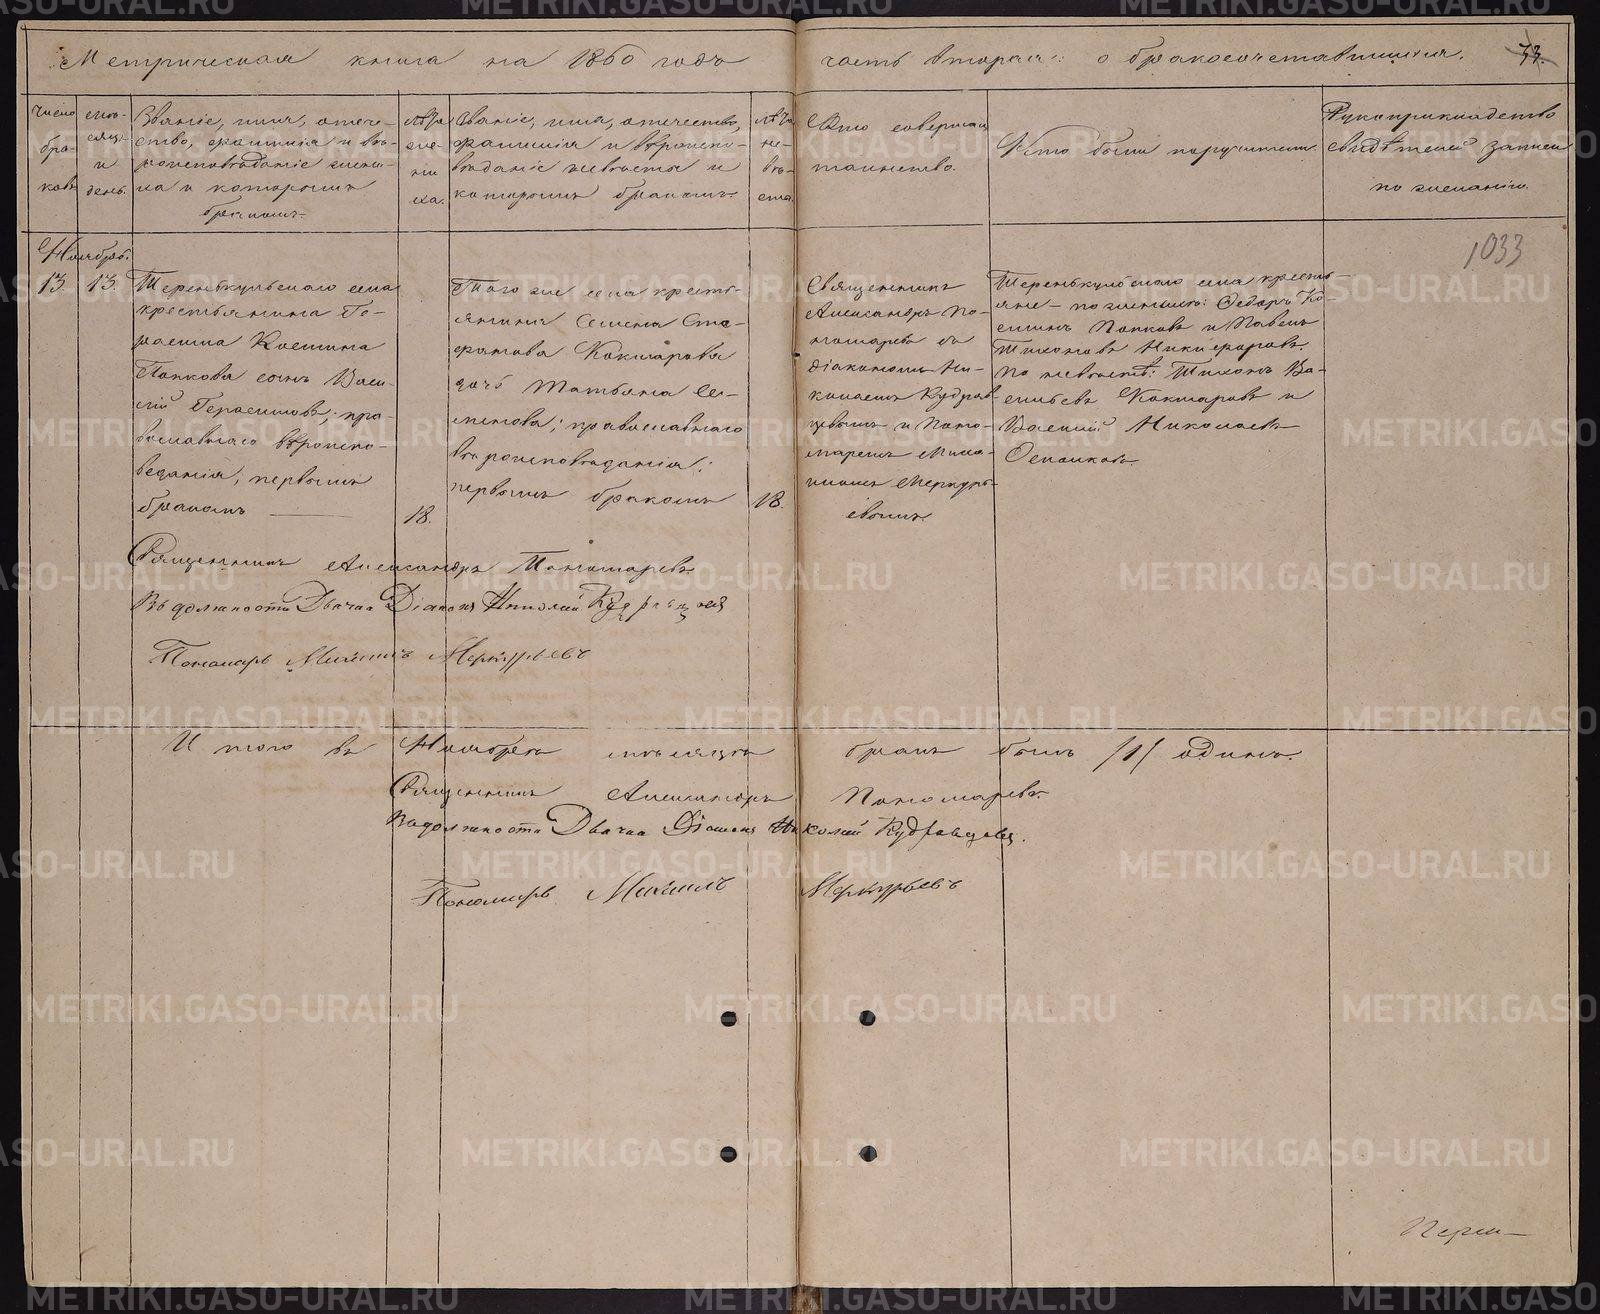 Метрическая книга на 1860 годъ часть вторая: о бракосочетавшихся.
33.
Число
бра-
ковъ
мѣ-
сяцъ
и
день.
Званіе, имя, отече-
ство, фамилія и вѣ-
роисповѣданіе жени-
ха и которымъ
бракомъ.
лѣта
же-
ни-
ха.
Званіе, имя, отечество,
фамилія и вѣроиспо-
вѣданіе невѣсты и
которымъ бракомъ.
лѣта
не-
вѣ-
сты.
Кто совершалъ
таинство.
Кто были поручители.
Рукоприкладство
свидѣтелей записи
по желанію.
1033
Ноябрь.
13. 13.
Тереньκульскаго села
крестьянина Ге-
расима Космина
Попкова сынъ Васи-
лій Герасимовъ; пра-
вославнаго вѣроиспо-
веданія, первымъ
бракомъ
18.
Того же села кресть-
янина Семена Ста-
фатова Кокшарова
дочь Татьяна Се-
менова; православнаго
вѣроисповѣданія;
первымъ бракомъ
18.
Священникъ
Александръ По-
номаревъ съ
діакономъ Ни-
колаемъ Кудряв-
цевымъ и Поно-
маремъ Миха-
иломъ Меркурь-
евымъ.
Теренькульскаго села кресть-
яне – по женихѣ: Федоръ Ко-
сминъ Попковъ и Павелъ
Тихоновъ Никифоровъ.
По невѣстѣ: Тихонъ Ва-
сильевъ Кокшаровъ и
Василій Николаевъ
Осинцовъ
Священникъ Александръ Пономаревъ.
Въ должности Дьячка Діаконъ Николай Кудрявцевъ
Пономарь Михаилъ Меркурьевъ
И того въ Ноябрѣ мѣсяцѣ бракъ былъ /1/ одинъ.
Священникъ Александръ Пономаревъ.
Въ должности Дьячка Діаконъ Николай Кудрявцевъ.
Пономарь Михаилъ Меркурьевъ
METRIKI.GASO-URAL.RU